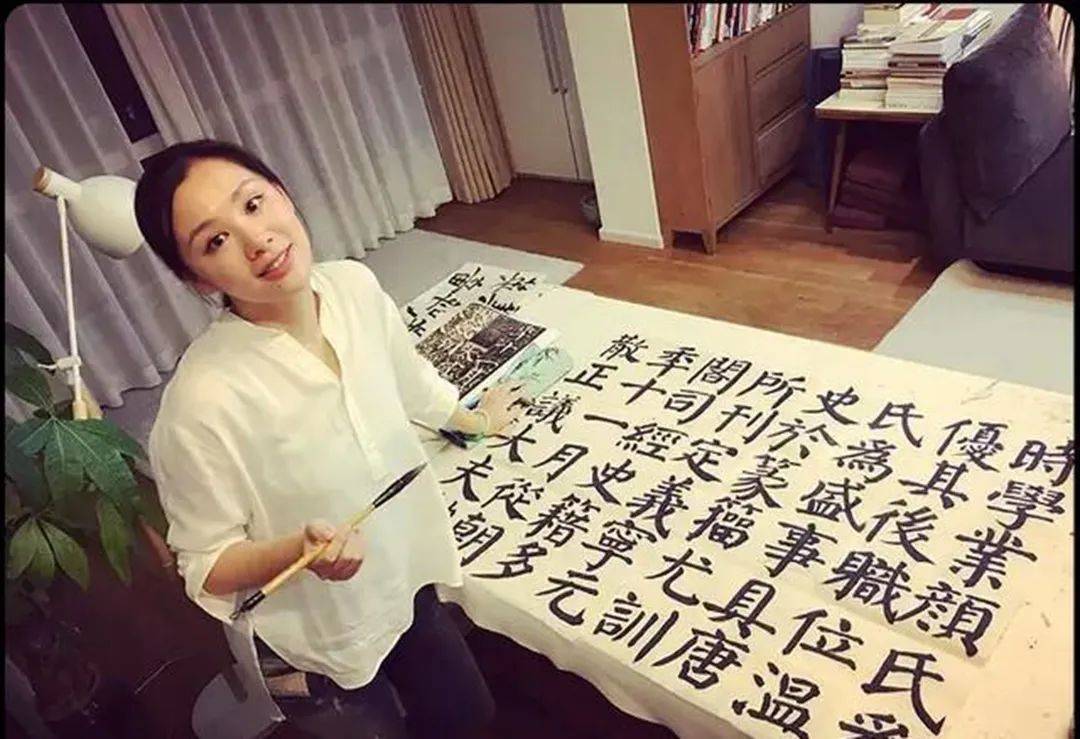 時學業顏氏
優其後職位溫
氏為盛事具唐
史於篆籀尤訓
所刊定義寧元
閣司經史籍多
秊十一月從朝
散正議大夫